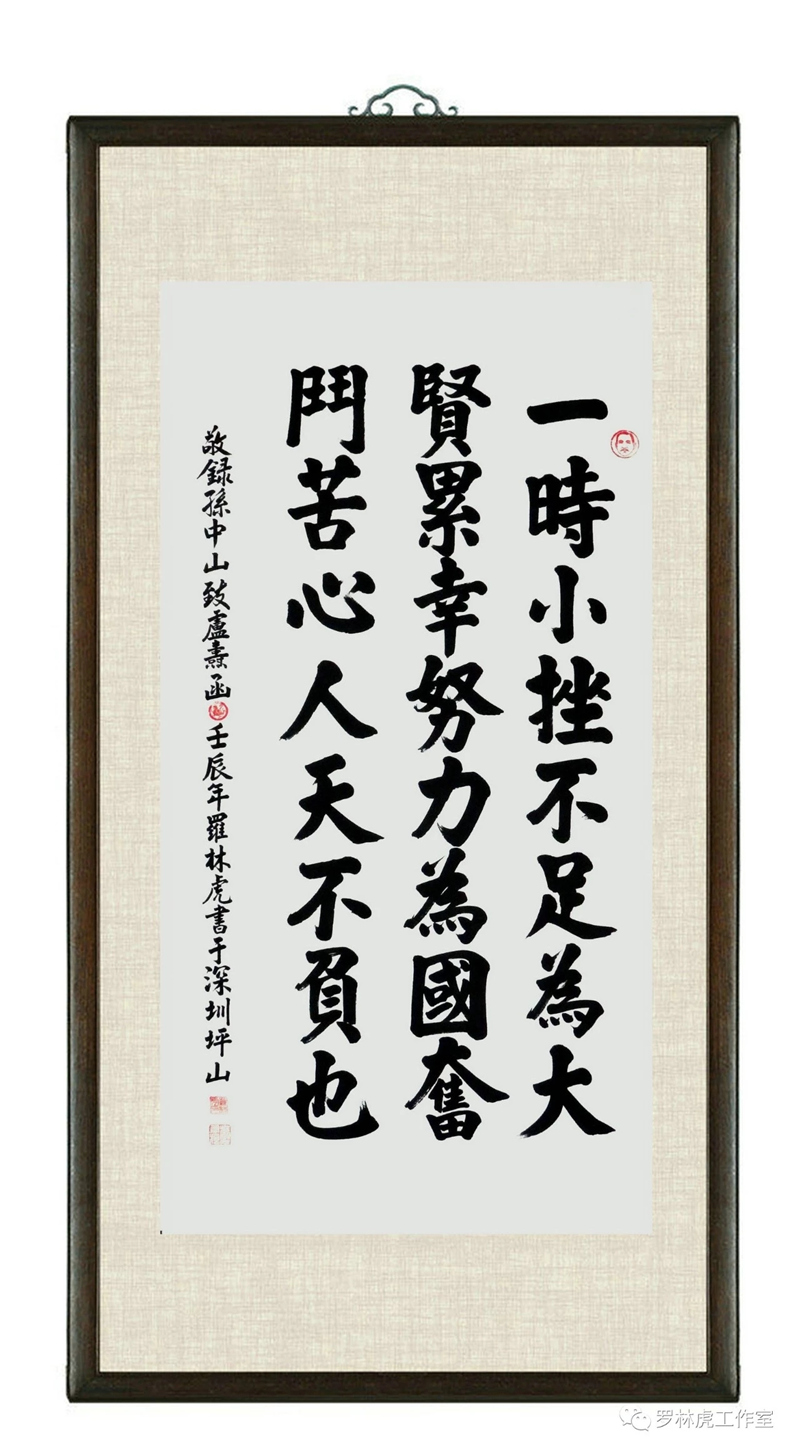 一時小挫不足為大
賢累幸努力為國奮
鬥苦心人天不負也
敬録孫中山致盧燾函
壬辰年羅林虎書于深圳坪山
罗林虎工作室